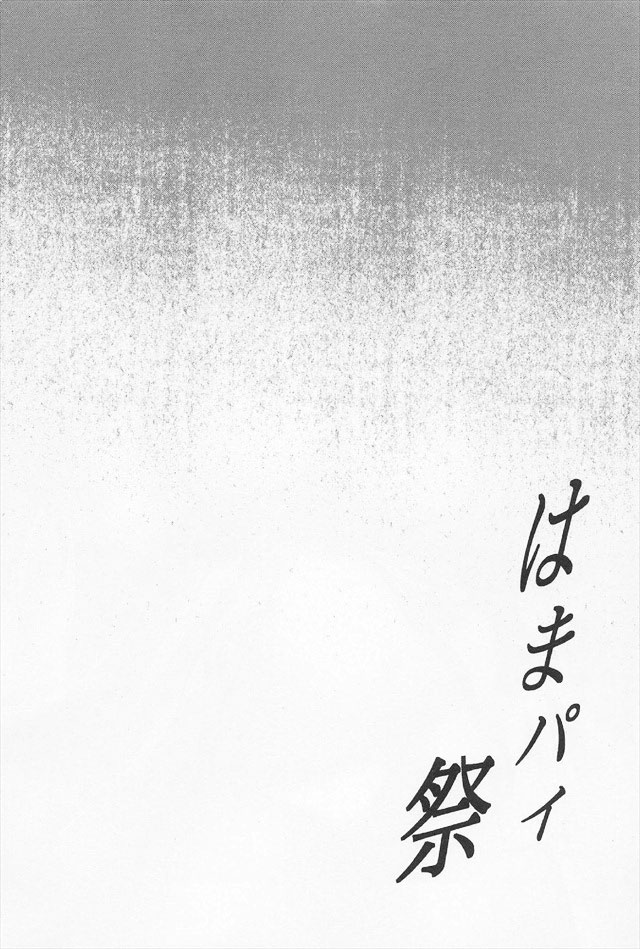 はまパイ
祭